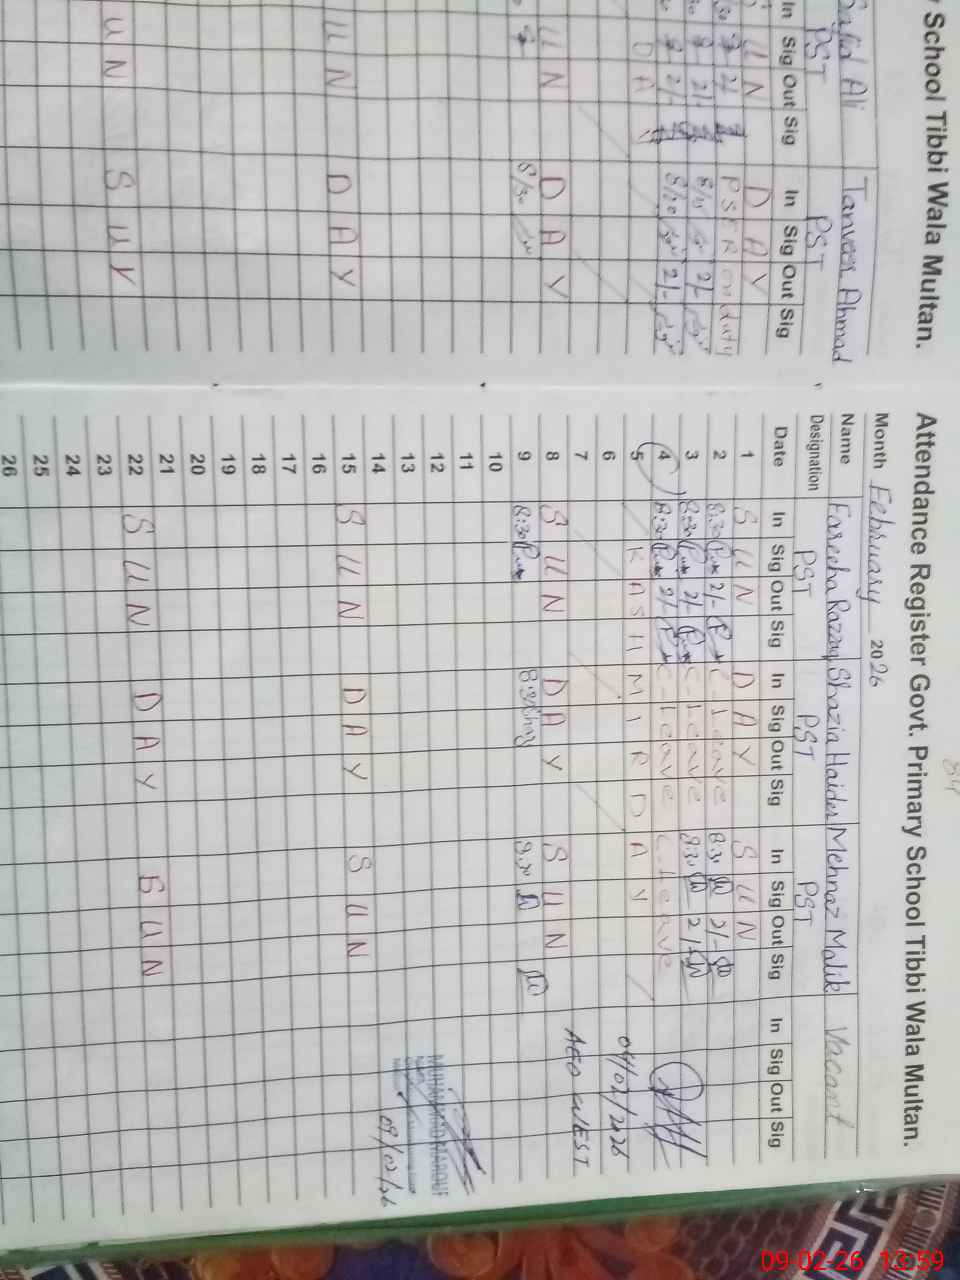 School Tibbi Wala Multan.
Sajid Ali Tanveer Ahmad
PST PST
In Sig Out Sig In Sig Out Sig
U N D A Y
PSER on duty
2/- 8/15 2/-
2/- 8/20 2/-
D A Y
U N D A Y
8/30
U N D A Y
U N S U Y
84
Attendance Register Govt. Primary School Tibbi Wala Multan.
Month February 2026
Name Fareeha Razzaq Shazia Haider Mehnaz Malik Vacant
Designation PST PST PST
Date In Sig Out Sig In Sig Out Sig In Sig Out Sig In Sig Out Sig
1 S U N D A Y S U N
2 8:30 2/- C-Leave 8:30 2/-
3 8:30 2/- C-Leave 8:30 2/-
4 8:30 2/- C-Leave C.Leave
5 K A S H M I R D A Y
6 04/02/2026
7 AEO WEST
8 S U N D A Y S U N
9 8:30 8:30 8:30
10
11
12 MUHAMMAD MAROUF
13
14 09/02/26
15 S U N D A Y S U N
16
17
18
19
20
21
22 S U N D A Y S U N
23
24
25
26
09-02-26 13:59